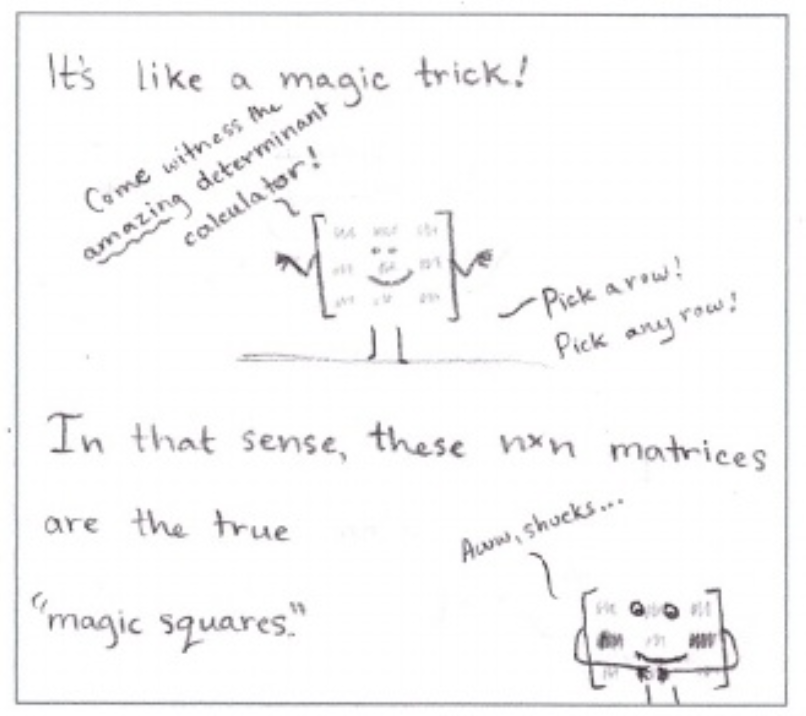 It's like a magic trick!
Come witness the
amazing determinant
calculator!
Pick a row!
Pick any row!
In that sense, these n×n matrices
are the true
"magic squares."
Aww, shucks...